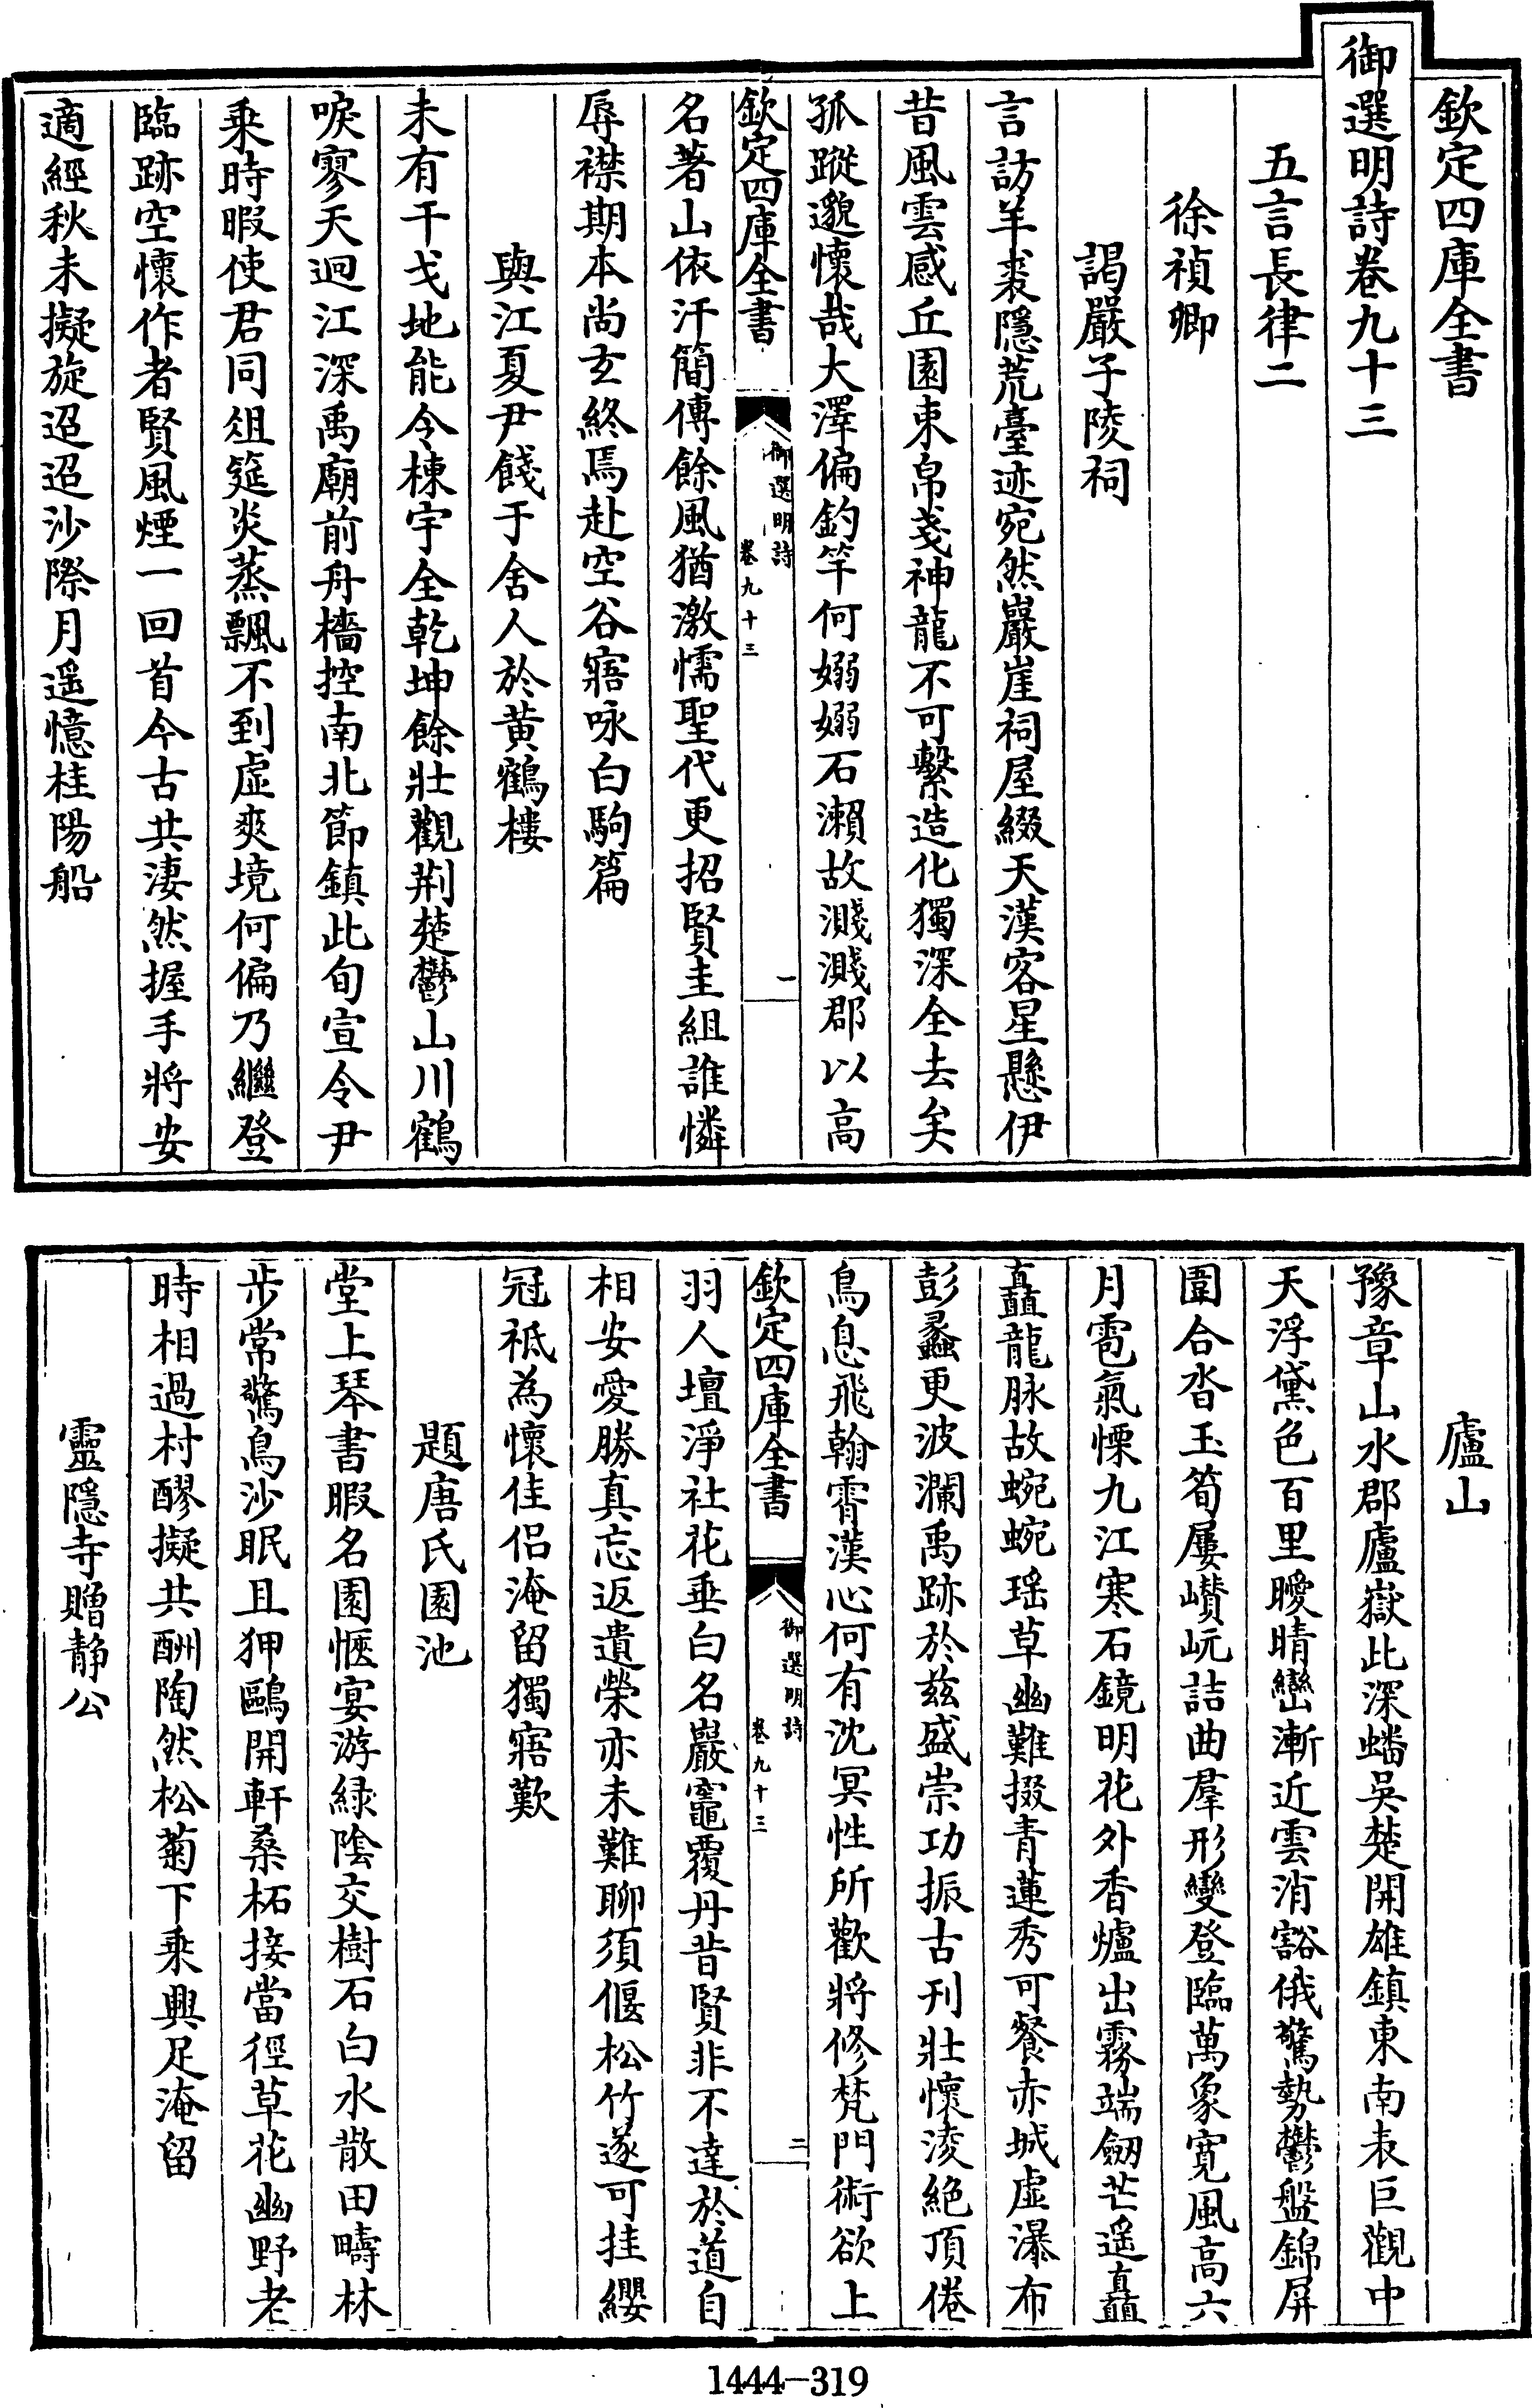 欽定四庫全書
御選明詩卷九十三
五言長律二
徐禎卿
謁嚴子陵祠
言訪羊裘隱荒臺迹宛然巖崖祠屋綴天漢客星懸伊
昔風雲感丘園束帛戔神龍不可繫造化獨深全去矣
孤蹤邈懷哉大澤偏釣竿何嫋嫋石瀨故濺濺郡以高
欽定四庫全書
御選明詩
卷九十三
一
名著山依汗簡傳餘風猶激懦聖代更招賢圭組誰憐
辱襟期本尚玄終焉赴空谷寤咏白駒篇
與江夏尹餞于舍人於黄鶴樓
未有干戈地能令棟宇全乾坤餘壯觀荆楚鬱山川鶴
唳寥天迥江深禹廟前舟檣控南北節鎮此旬宣令尹
乗時暇使君同俎筵炎蒸飄不到虛爽境何偏乃繼登
臨跡空懷作者賢風煙一回首今古共淒然握手將安
適經秋未擬旋迢迢沙際月遥憶桂陽船
廬山
豫章山水郡廬嶽此深蟠吳楚開雄鎮東南表巨觀中
天浮黛色百里曖晴巒漸近雲消豁俄驚勢鬱盤錦屏
圍合沓玉筍屢巑岏詰曲羣形變登臨萬象寛風高六
月雹氣慄九江寒石鏡明花外香爐出霧端劒芒遥矗
矗龍脉故蜿蜿瑶草幽難掇青蓮秀可餐赤城虛瀑布
彭蠡更波瀾禹跡於兹盛崇功振古刊壯懷淩絶頂倦
鳥息飛翰霄漢心何有沈冥性所歡將修梵門術欲上
欽定四庫全書
御選明詩
卷九十三
二
羽人壇淨社花垂白名巖竈覆丹昔賢非不達於道自
相安愛勝真忘返遺榮亦未難聊須偃松竹遂可挂纓
冠衹為懷佳侣淹留獨寤歎
題唐氏園池
堂上琴書暇名園愜宴游緑隂交樹石白水散田疇林
步常驚鳥沙眠且狎鷗開軒桑柘接當徑草花幽野老
時相過村醪擬共酬陶然松菊下乗興足淹留
靈隱寺贈静公
1444-319